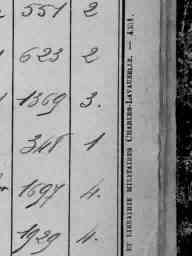 551 2
623 2
1369 3.
348 1
1697 4.
1929 4.
ET LIBRAIRIE MILITAIRES CHARLES-LAVAUZELLE. —